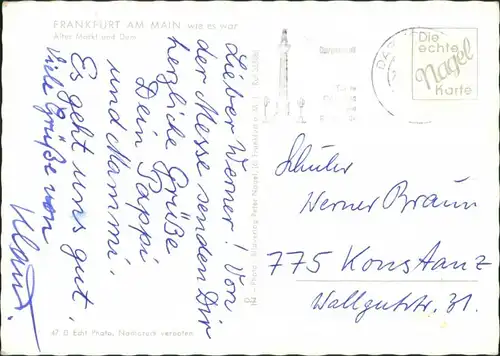 FRANKFURT AM MAIN wie es war
Alter Markt und Dom
Lieber Werner! Von
der Messe senden Dir
herzliche Grüße
Dein Pappi
und Mammi.
Es geht uns gut.
Viele Grüße von
Klaus.
67 D Echt Photo, Nachdruck verboten
Die
echte
Nagel
Karte
Schüler
Werner Braun
775 Konstanz
Wallgutstr. 31.